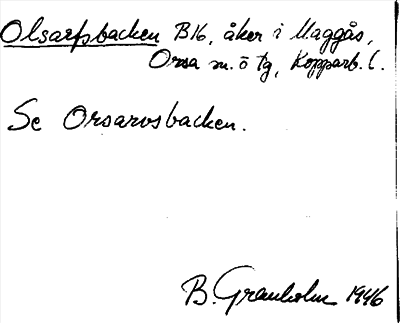 Olsarfsbacken B16, åker i Maggås,
Orsa sn. o tg, Kopparb. l.
Se Orsarvsbacken.
B. Granholm 1946